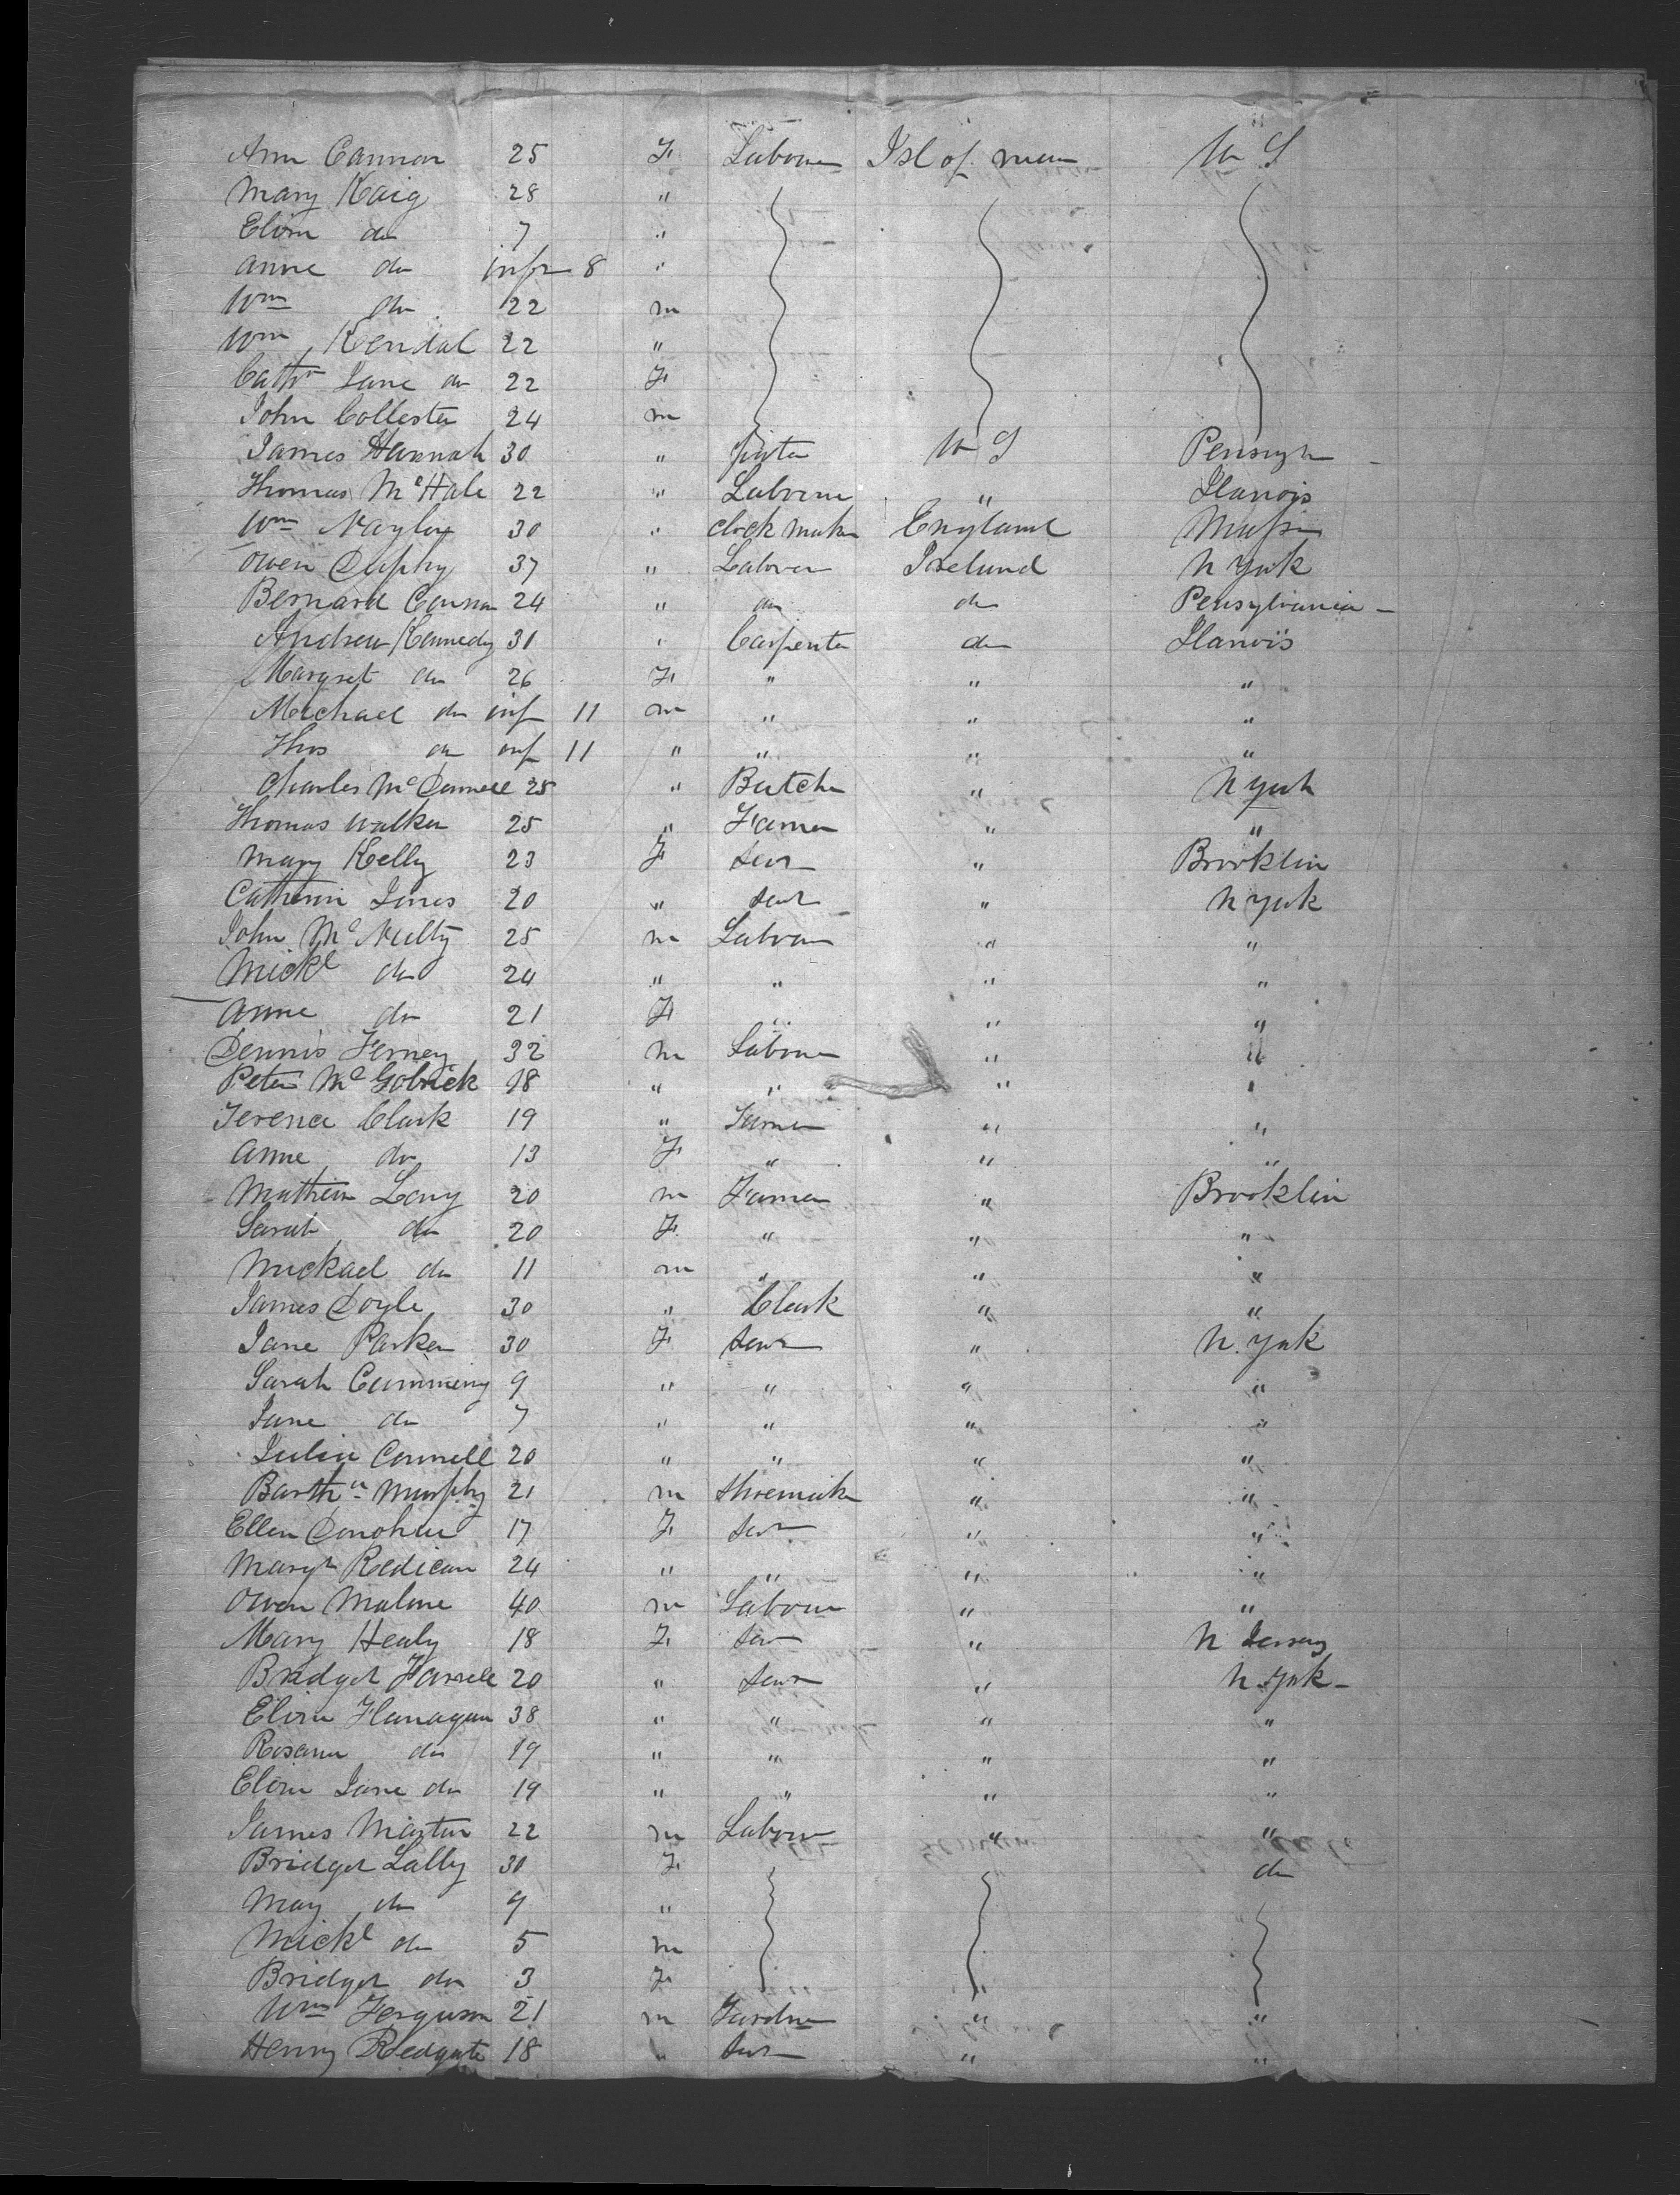 Ann Cannon 25 F Labour Isl of man U S
Mary Kaig 28 "
Eliza do 7 "
Anne do infn 8 "
Wm do 22 m
Wm Kendal 22 "
Cathn Jane do 22 F
John Collester 24 m
James Hannah 30 " U S Pensyn
Thomas McHale 22 " Labour " Ilanois
Wm Naylor 30 " Clock maker England Mass
Owen Duphy 37 " Labour Ireland N York
Bernard Connor 24 " do do Pensylvania
Andrew Kennedy 31 " Carpenter do Ilanois
Margret do 26 F " " "
Michael do inf 11 m " " "
Thos do inf 11 " " " "
Charles McDonnell 25 " Butcher " N York
Thomas Walker 25 " Farmer " "
Mary Kelly 23 F Serv " Brooklin
Catherin Jones 20 " Serv " N York
John McNulty 25 m Labour " "
Mickl do 24 " " " "
Anne do 21 F " " "
Dennis Ferney 32 m Labour " "
Peter McGobrick 18 " " " "
Terence Clark 19 " Farmer " "
Anne do 13 F " " "
Mathew Lavy 20 m Farmer " Brooklin
Sarah do 20 F " " "
Mickael do 11 m " " "
James Doyle 30 " Clark " "
Jane Parker 30 F Serv " N. York
Sarah Cumming 9 " " " "
Jane do 7 " " " "
Julia Connell 20 " " " "
Barthw Murphy 21 m Shoemaker " "
Ellen Donohue 17 F Serv " "
Margt Redican 24 " " " "
Owen Malone 40 m Labour " "
Mary Healy 18 F Serv " N Jersey
Bridget Farrell 20 " Serv " N. York
Eliza Flanagan 38 " " " "
Rosann do 19 " " " "
Eliza Jane do 19 " " " "
James Martin 22 m Labour " "
Bridget Lally 30 F do
May do 9 "
Mickl do 5 m
Bridget do 3 F "
Wm Ferguson 21 m Gardner " "
Henry Redgate 18 " Serv " "